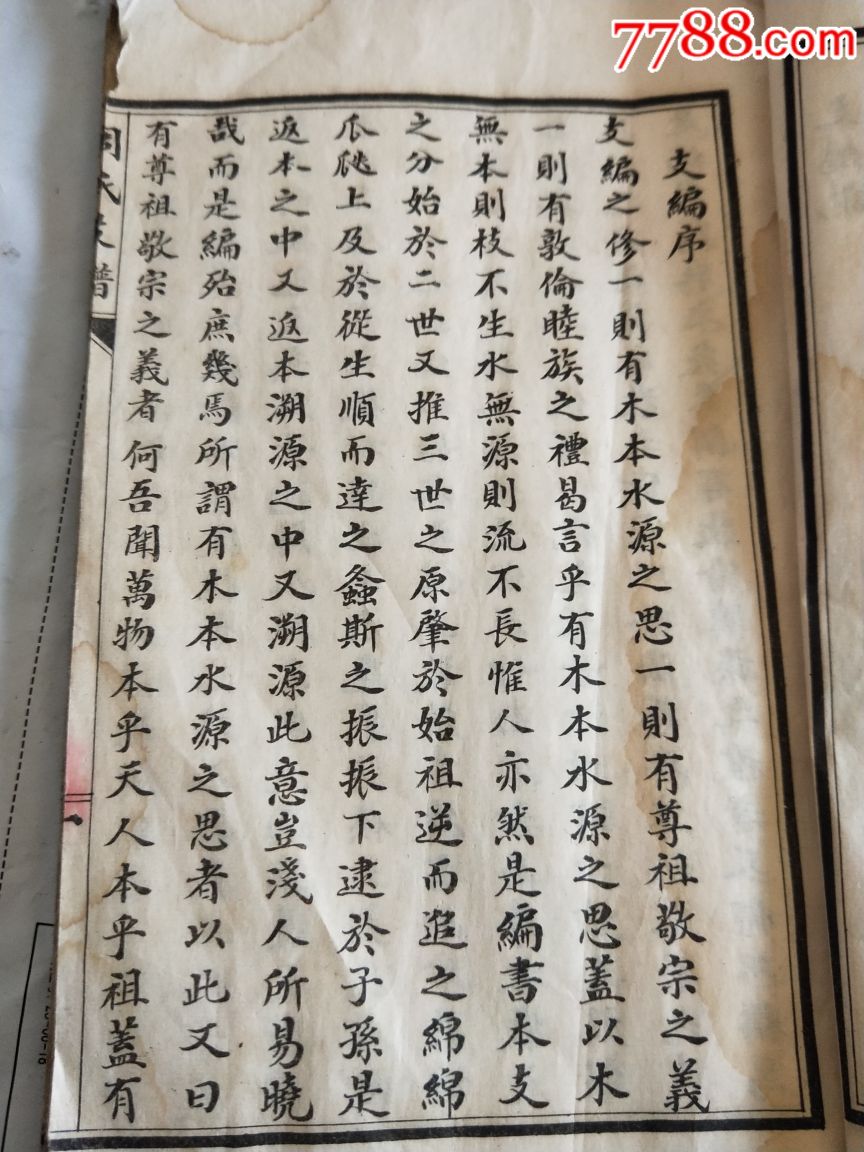 7788.com
支編序
支編之修一則有木本水源之思一則有尊祖敬宗之義
一則有敦倫睦族之禮曷言乎有木本水源之思蓋以木
無本則枝不生水無源則流不長惟人亦然是編書本支
之分始於二世又推三世之原肇於始祖逆而追之綿綿
瓜瓞上及於從生順而達之螽斯之振振下逮於子孫是
返本之中又返本溯源之中又溯源此意豈淺人所易曉
哉而是編殆庶幾焉所謂有木本水源之思者以此又曰
有尊祖敬宗之義者何吾聞萬物本乎天人本乎祖蓋有
周氏支譜